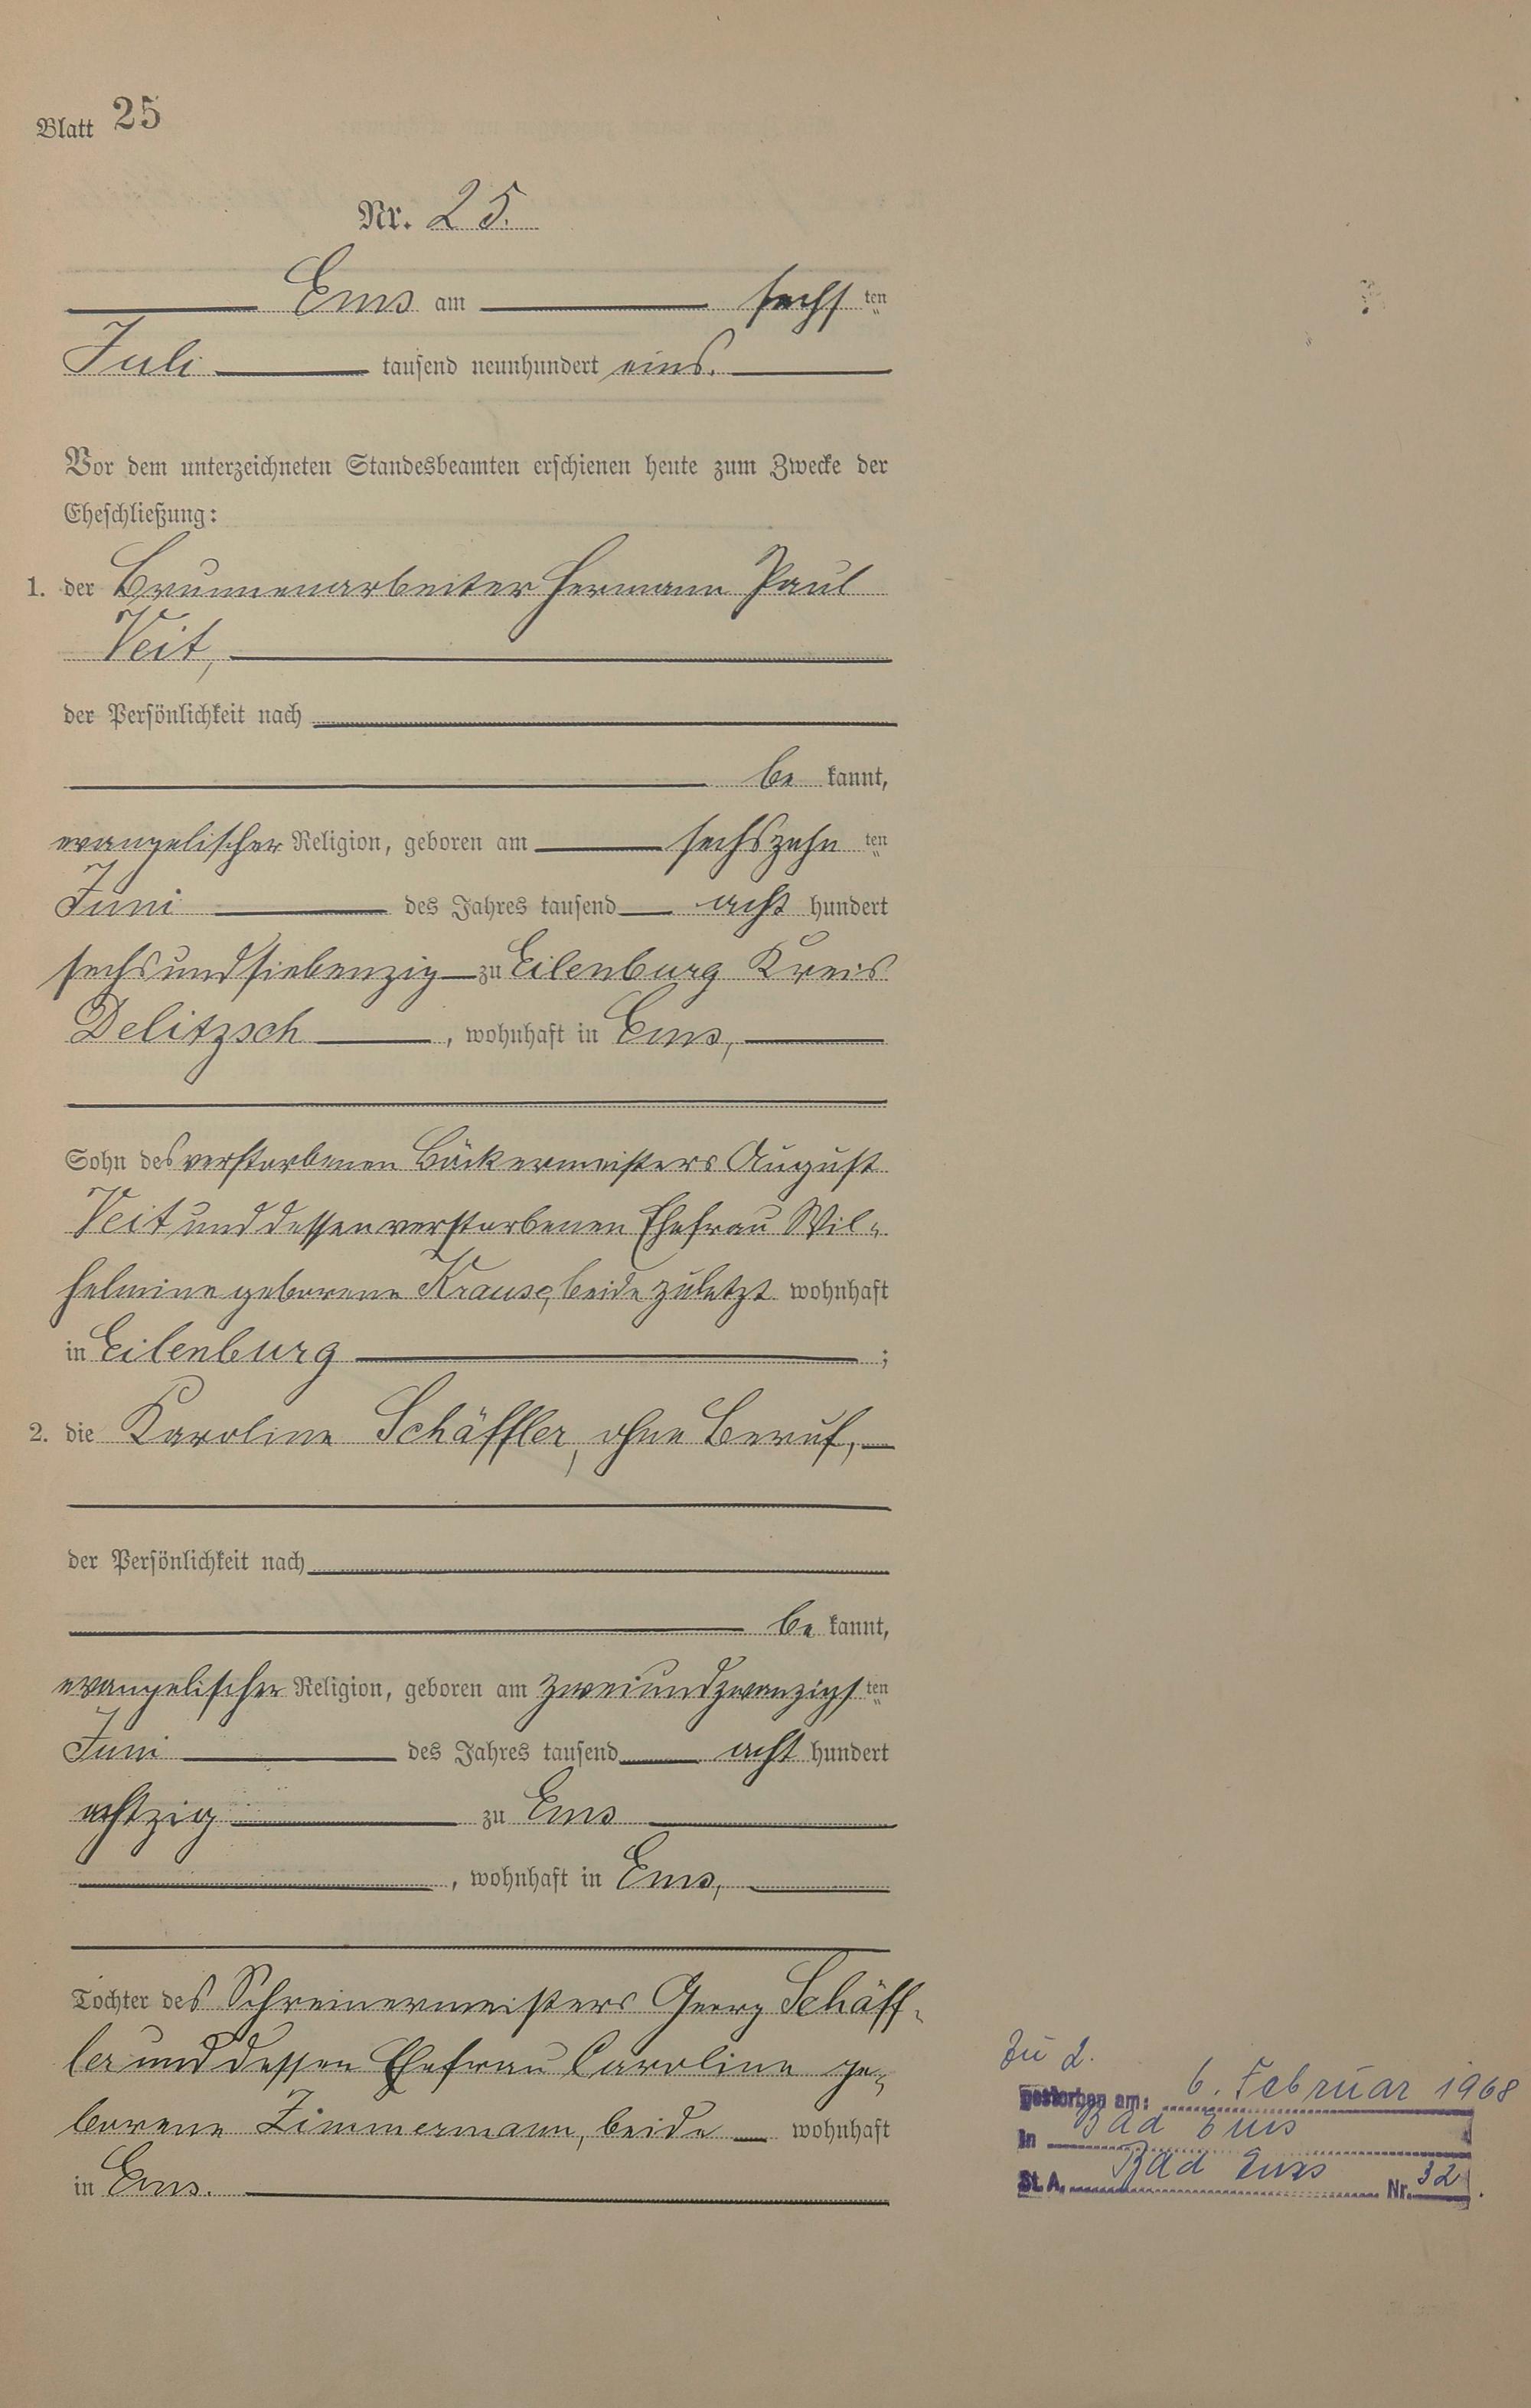 Blatt 25
Nr. 25.
Ems am sechsten
Juli tausend neunhundert eins.
Vor dem unterzeichneten Standesbeamten erschienen heute zum Zwecke der
Eheschließung:
1. der Brunnenarbeiter Hermann Paul
Veit,
der Persönlichkeit nach
be kannt,
evangelischer Religion, geboren am sechszehn ten
Juni des Jahres tausend acht hundert
sechsundsiebenzig zu Eilenburg Kreis
Delitzsch, wohnhaft in Ems,
Sohn des verstorbenen Bäckermeisters August
Veit und dessen verstorbenen Ehefrau Wil-
helmine geborene Krause, beide zuletzt wohnhaft
in Eilenburg ;
2. die Karoline Schäffler, ohne Beruf,
der Persönlichkeit nach
be kannt,
evangelischer Religion, geboren am zweiundzwanzigsten
Juni des Jahres tausend acht hundert
achtzig zu Ems
, wohnhaft in Ems,
Tochter des Schreinermeisters Georg Schäff-
ler und dessen Ehefrau Caroline ge-
borene Zimmermann, beide wohnhaft
in Ems.
Zu 2.
gestorben am: 6. Februar 1968
in Bad Ems
St. A. Bad Ems Nr. 32.